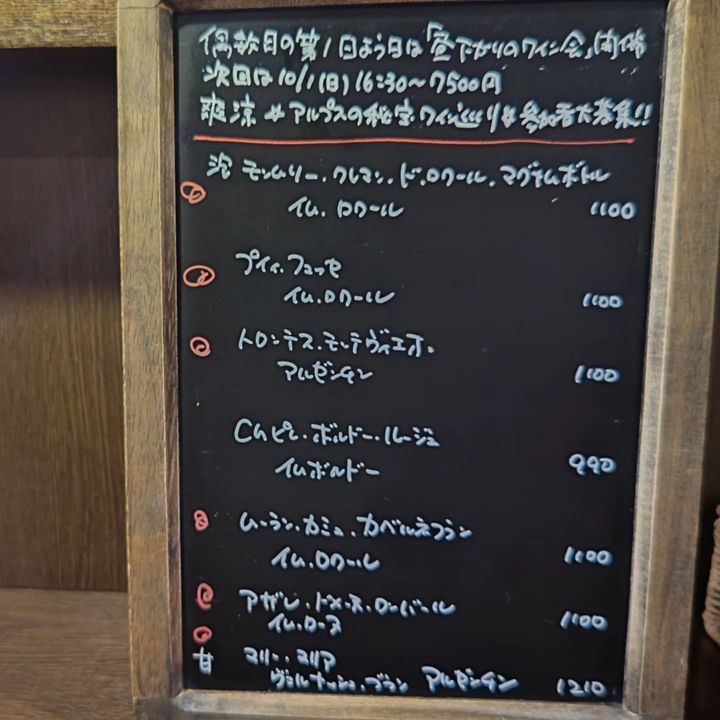 偶数月の第1日よう日は「昼下がりのワイン会」開催
次回は10/1(日)16:30〜7500円
爽涼 # アルプスの秘宝ワイン巡り# 参加者大募集!!
泡 モンムソー・クレマン・ド・ロワール・マグナムボトル
仏・ロワール 1100
プイィ・フュッセ
仏・ロワール 1100
トロンテス・モンテヴィエホ・
アルゼンチン 1100
ボルドー・ルージュ
仏ボルドー 990
ムーラン・カミュ・カベルネフラン
仏・ロワール 1100
アガレ・ドメーヌ・ローバール
仏・ローヌ 1100
甘 マリン・マリア
アルゼンチン 1210